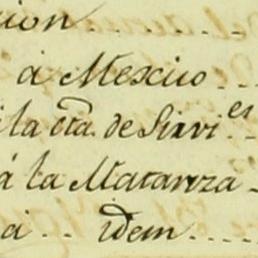 ion ....
á Mexico ...
i la cta. de Sirvi.es
á la Matanza -
a .. idem .....